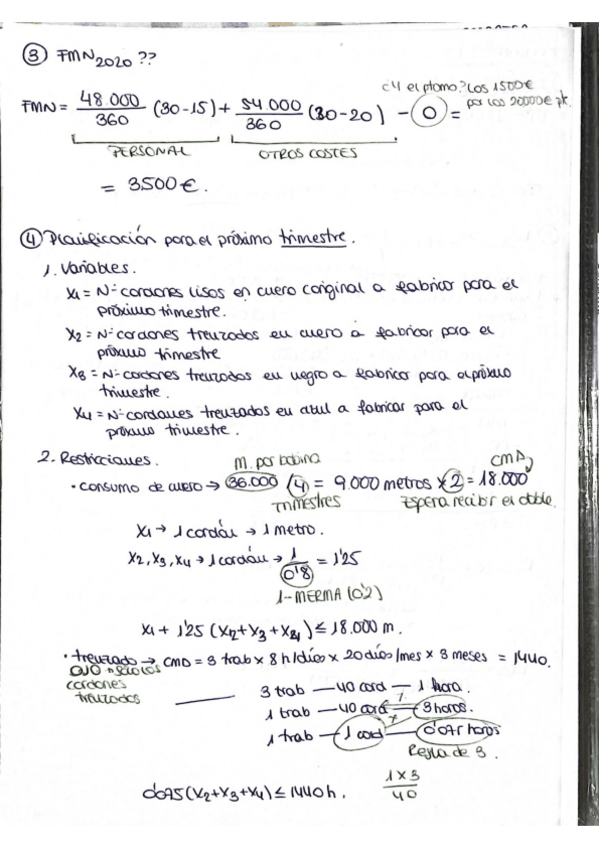 ③ FMN2020 ??
¿Y el plomo? Los 1500€
por los 20000€ pk.
FMN = 48.000/360 (30-15) + 54.000/360 (30-20) - 0 =
PERSONAL OTROS COSTES
= 3500€.
④ Planificación para el próximo trimestre.
1. Variables.
X1 = Nº cordones lisos en cuero original a fabricar para el
próximo trimestre.
X2 = Nº cordones trenzados en cuero a fabricar para el
próximo trimestre
X3 = Nº cordones trenzados en negro a fabricar para el próximo
trimestre.
X4 = Nº cordones trenzados en azul a fabricar para el
próximo trimestre.
2. Restricciones.
M. por bobina CMD
· consumo de cuero → 36.000 / 4 = 9.000 metros x 2 = 18.000
trimestres Espera recibir el doble.
X1 → 1 cordón → 1 metro.
X2, X3, X4 → 1 cordón → 1/0'8 = 1'25
1-MERMA (0'2)
X1 + 1'25 (X2+X3+X4) ≤ 18.000 m.
· trenzado → CMD = 3 trab x 8 h/días x 20 días/mes x 3 meses = 1440.
OJO → solo los
cordones
trenzados
3 trab — 40 cord — 1 hora.
1 trab — 40 cord — 3 horas.
1 trab — 1 cord — 0'075 horas
Regla de 3.
0'075 (X2+X3+X4) ≤ 1440 h. 1x3/40